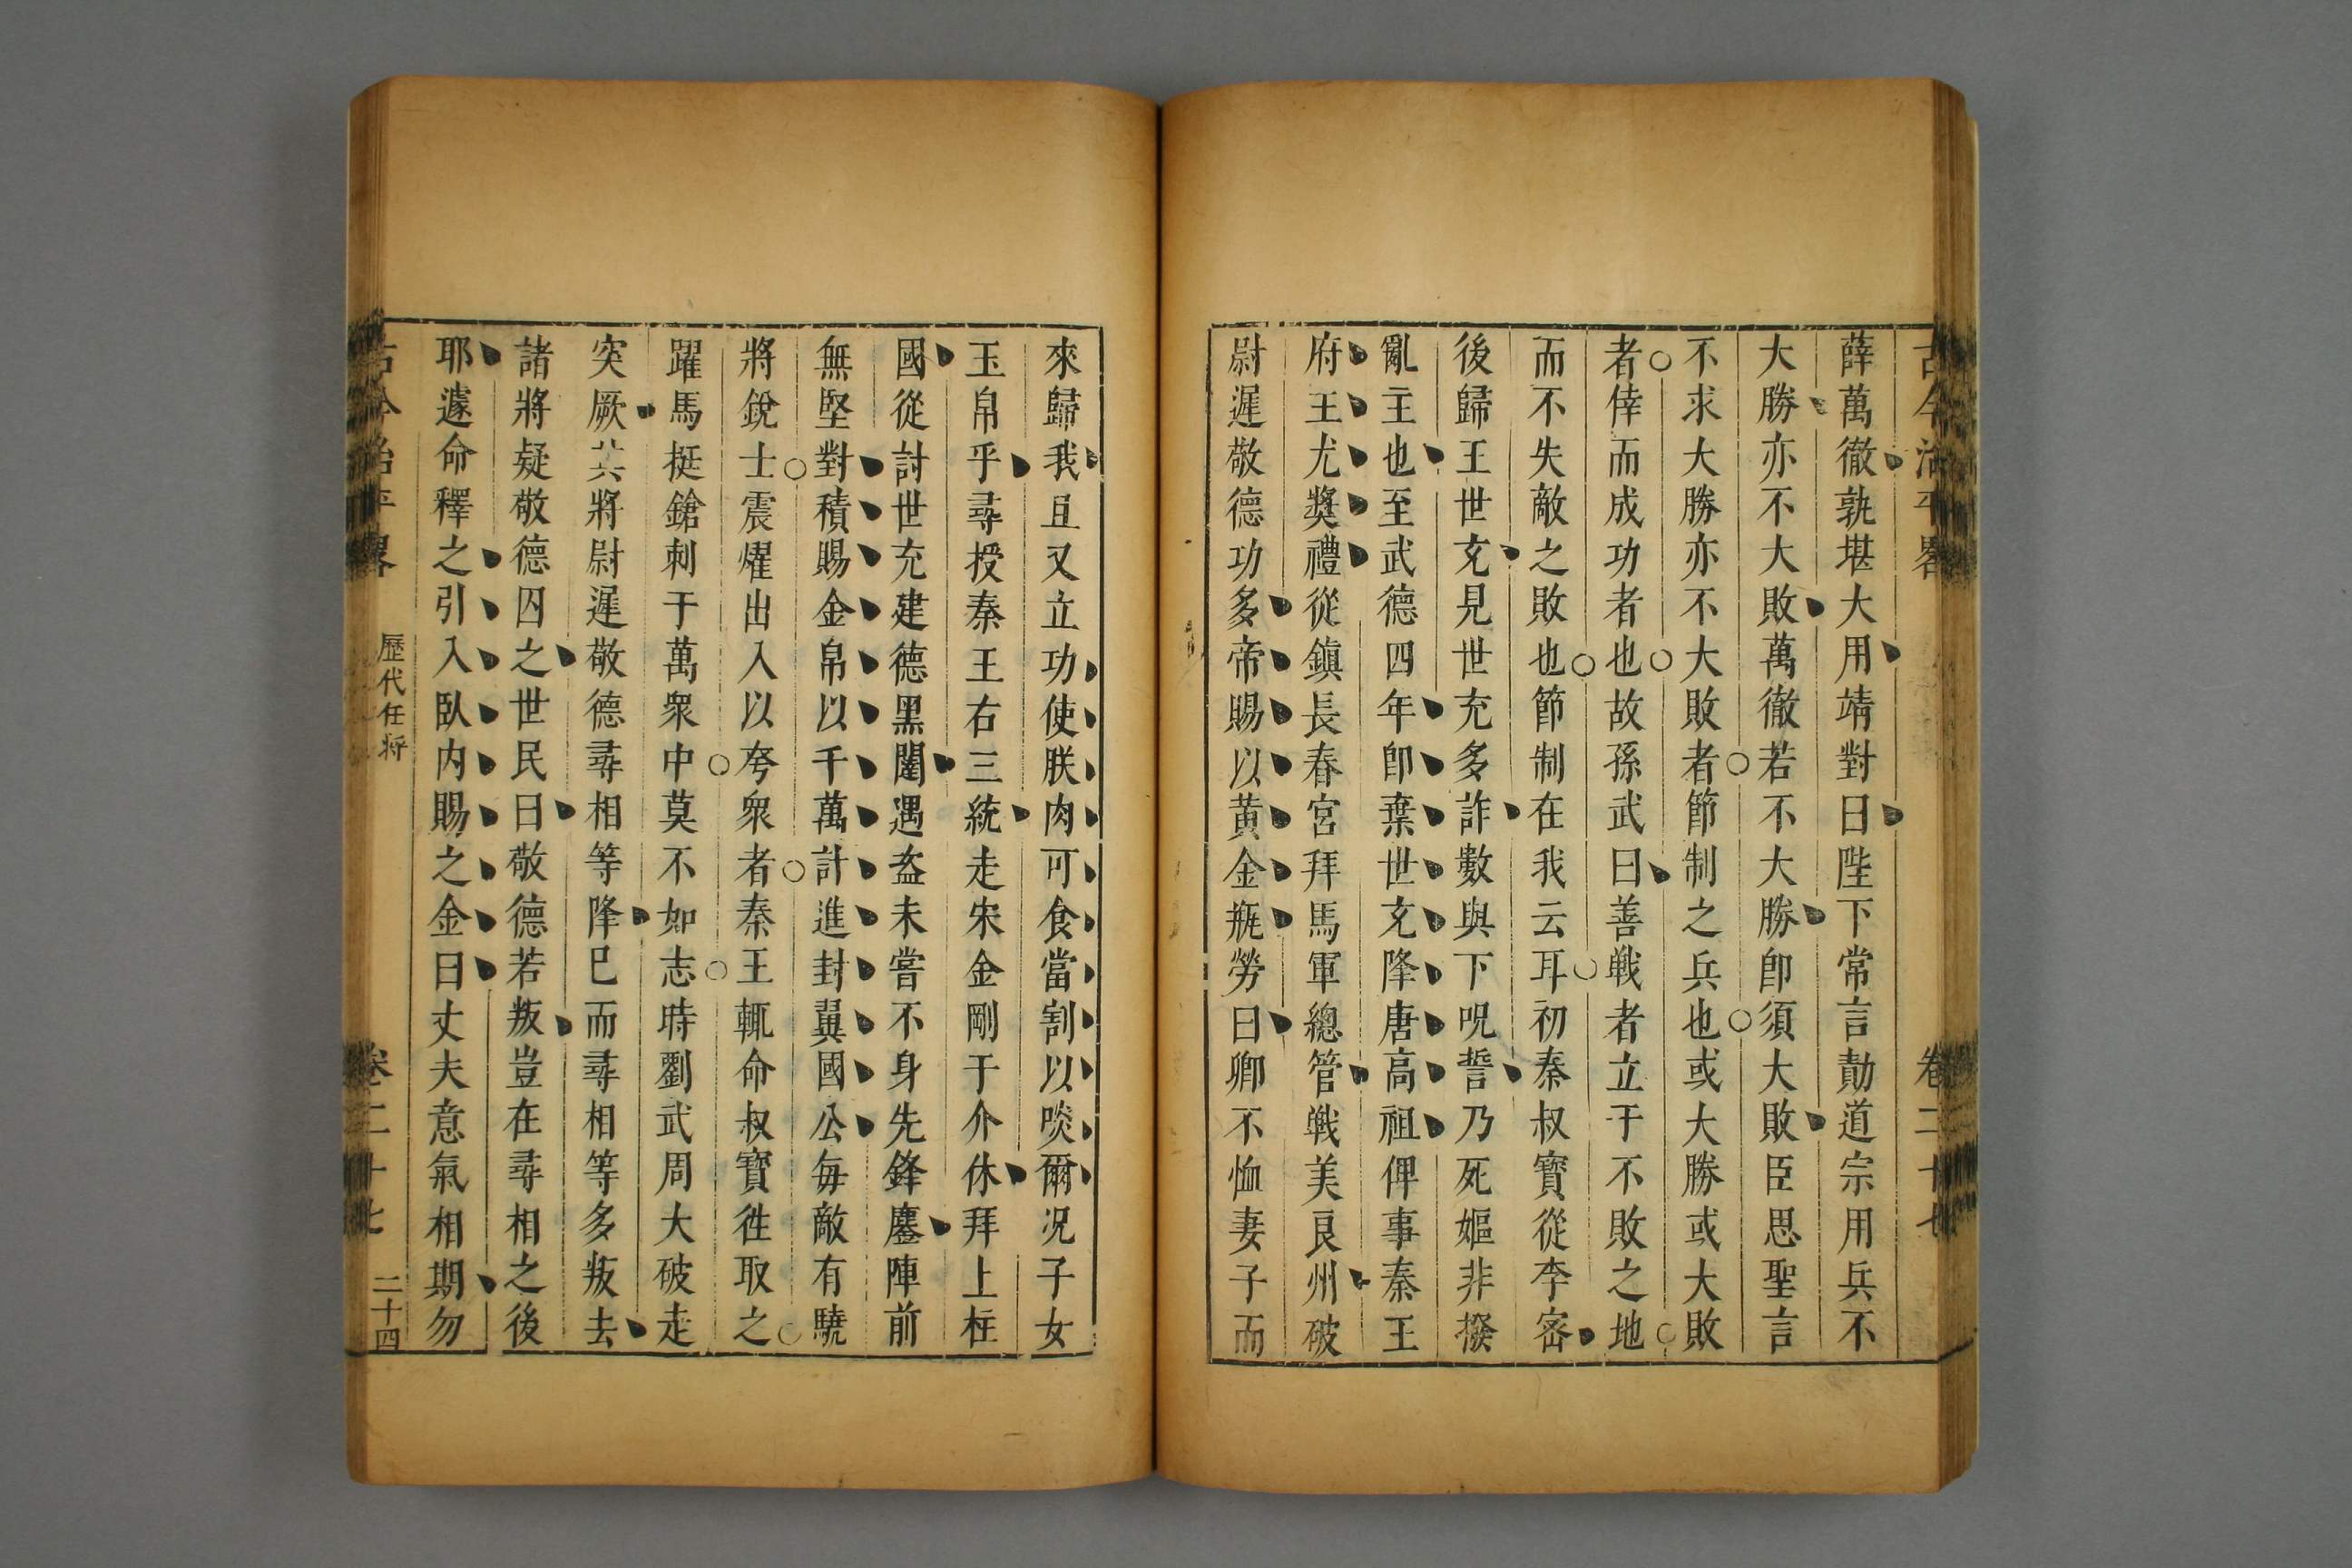 古今治平畧
卷二十七
薛萬徹孰堪大用靖對曰陛下常言勣道宗用兵不
大勝亦不大敗萬徹若不大勝卽須大敗臣思聖言
不求大勝亦不大敗者節制之兵也或大勝或大敗
者倖而成功者也故孫武曰善戦者立于不敗之地
而不失敵之敗也節制在我云耳初秦叔寶從李宻
後歸王世充見世充多詐數與下呪誓乃死嫗非撥
亂主也至武德四年卽棄世充降唐高祖俾事秦王
府王尤奬禮從鎮長春宮拜馬軍總管戦美良州破
尉遲敬德功多帝賜以黄金瓶勞曰卿不恤妻子而
來歸我且又立功使朕肉可食當割以啖爾况子女
玉帛乎尋授秦王右三統走宋金剛于介休拜上柱
國從討世充建德黑闥遇盗未嘗不身先鋒鏖陣前
無堅對積賜金帛以千萬計進封翼國公毎敵有驍
將銳士震燿出入以夸衆者秦王輒命叔寶徃取之
躍馬挺鎗刺于萬衆中莫不如志時劉武周大破走
突厥其將尉遲敬德尋相等降巳而尋相等多叛去
諸將疑敬德囚之世民曰敬德若叛豈在尋相之後
耶遽命釋之引入臥内賜之金曰丈夫意氣相期勿
古今治平畧
歷代任将
卷二十七
二十四